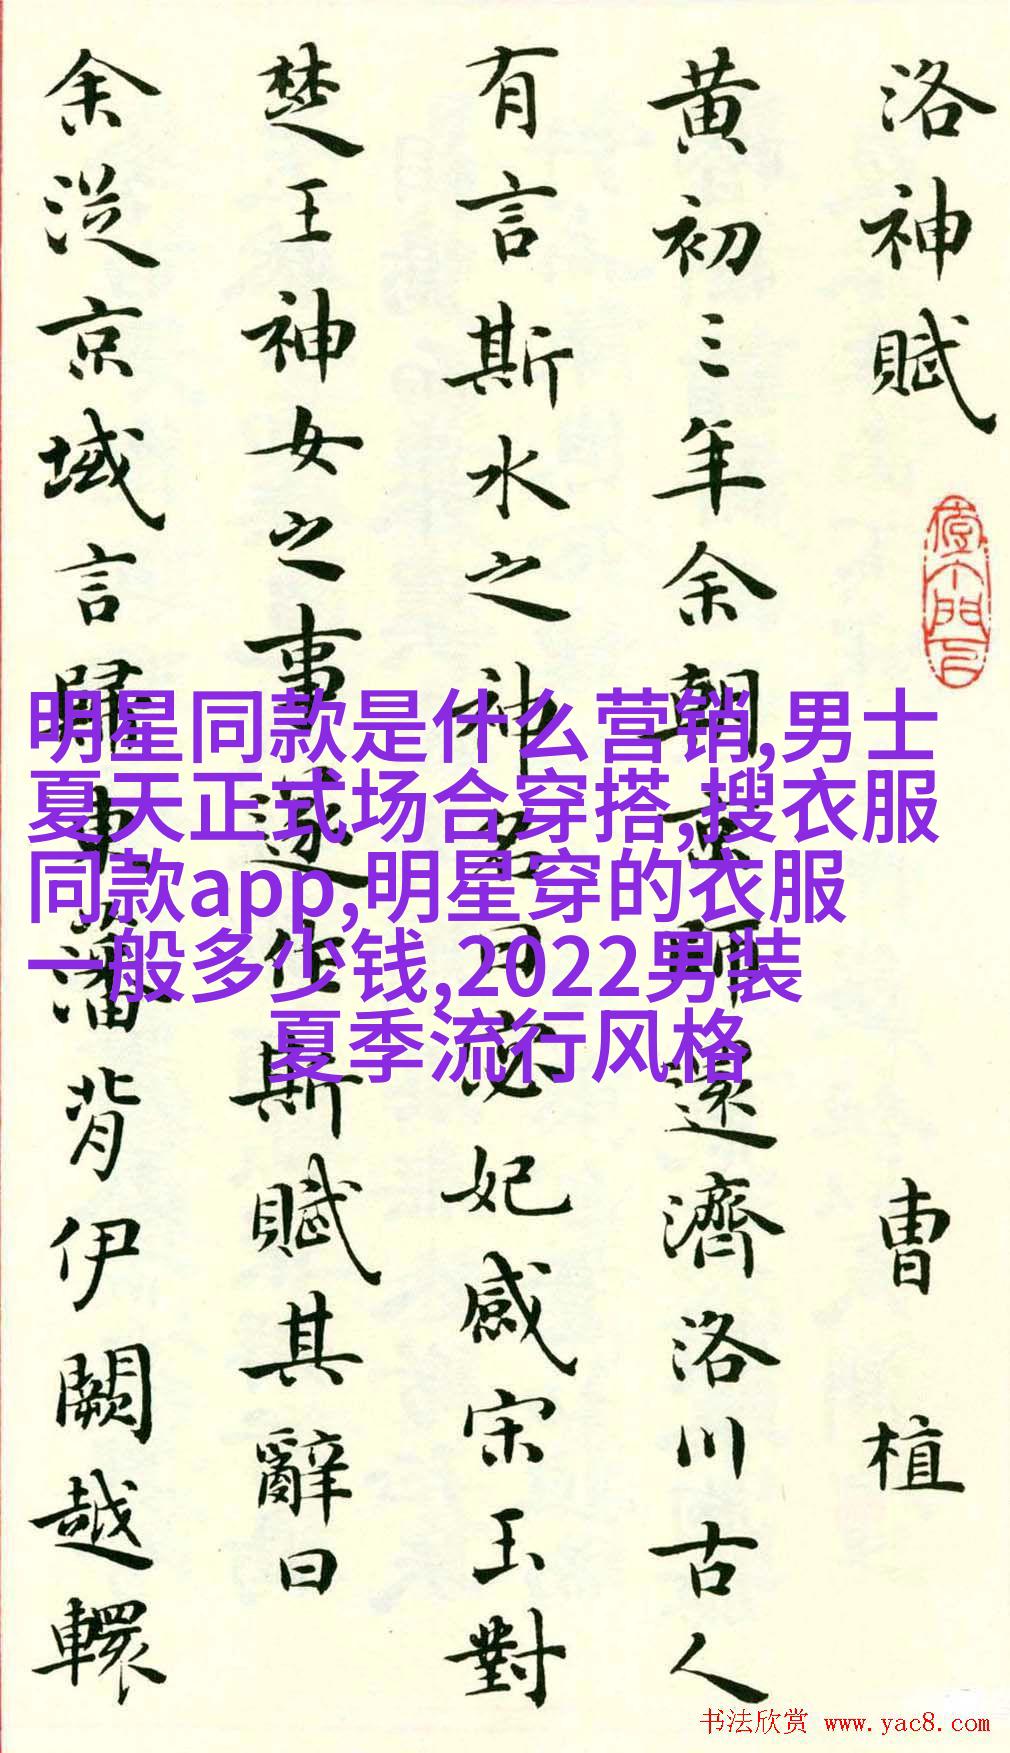 洛神賦
曹植
黄初三年余朝京師還濟洛川古人
有言斯水之神名曰宓妃感宋玉對
楚王神女之事遂作斯賦其辭曰
余從京域言歸東藩背伊闕越轘
明星同款是什么营销,男士
夏天正式场合穿搭,搜衣服
同款app,明星穿的衣服
一般多少钱,2022男装
夏季流行风格
书法欣赏 www.yac8.com